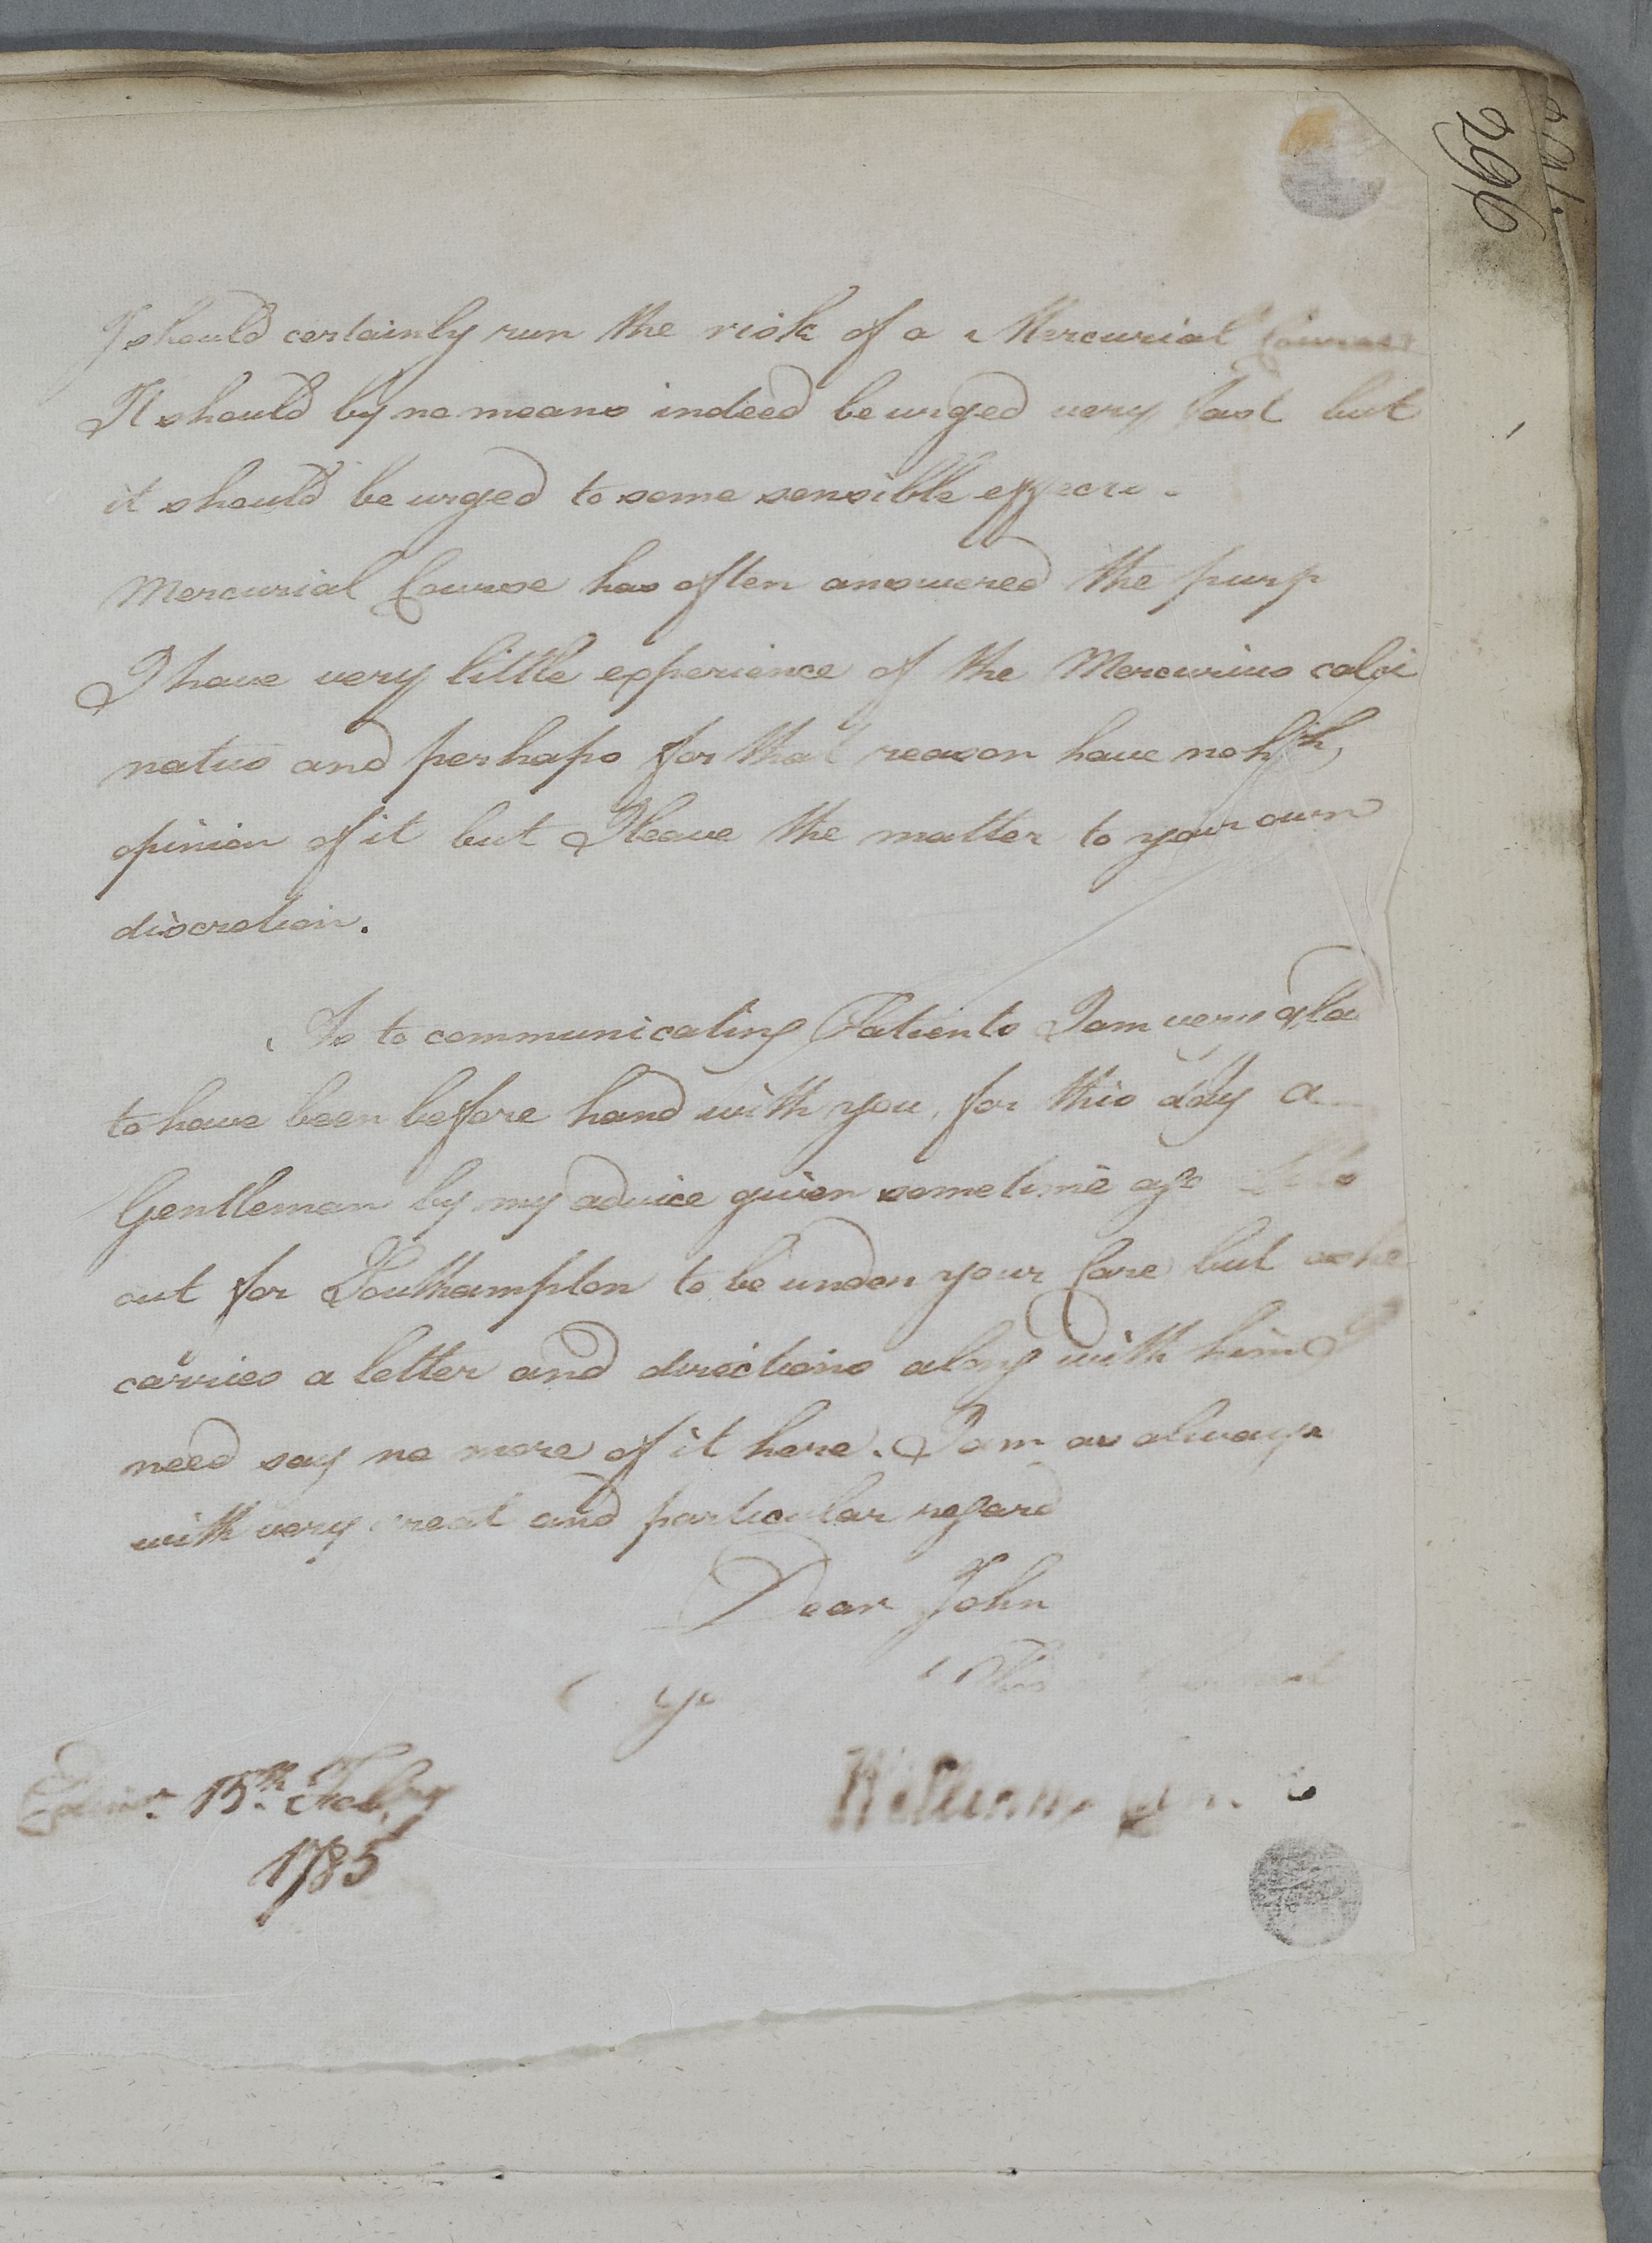 296
I should certainly run the risk of a Mercurial Course
It should by no means indeed be urged very fast but
it should be urged to some sensible effects.
Mercurial Course has often answered the purp
I have very little experience of the Mercurius calci
natus and perhaps for that reason have no high
opinion of it but I leave the matter to your own
discretion.
As to communicating Patients I am very gla
to have been before hand with you, for this day a
Gentleman by my advice given sometime ago sets
out for Southampton to be under your Care but as he
carries a letter and directions along with him I
need say no more of it here. I am as always
with very great and particular regard
Dear John
William
Edinr. 15th. Febry
1785